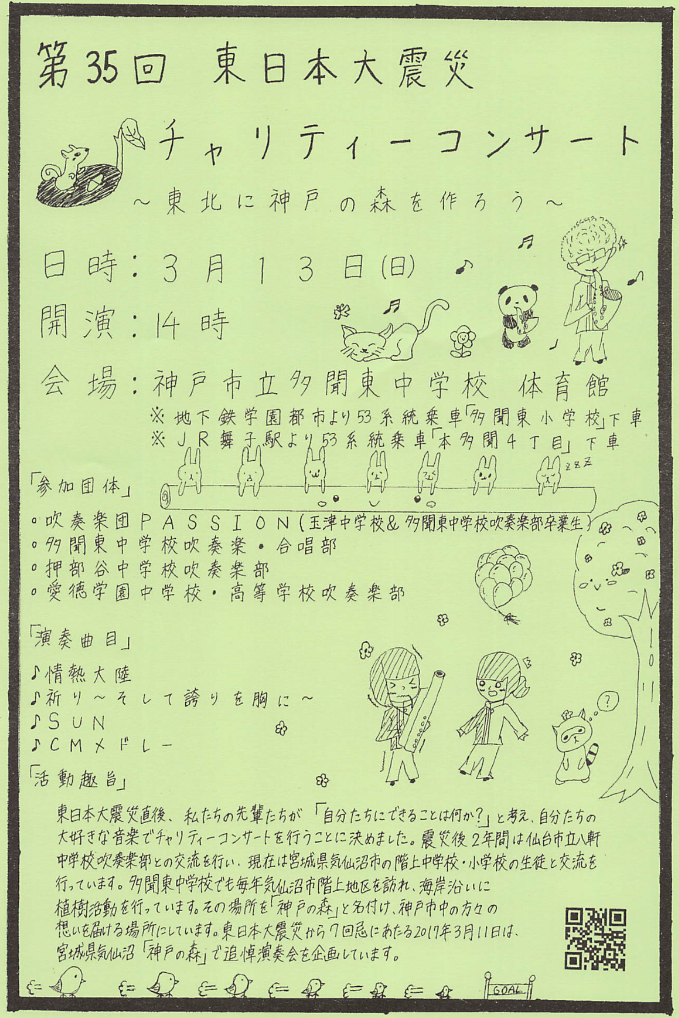 第35回 東日本大震災
チャリティーコンサート
～東北に神戸の森を作ろう～
日時：3月13日(日)
開演：14時
会場：神戸市立多聞東中学校 体育館
※地下鉄学園都市より53系統乗車「多聞東小学校」下車
※JR舞子駅より53系統乗車「本多聞4丁目」下車
zzz
「参加団体」
。吹奏楽団PASSION(玉津中学校&多聞東中学校吹奏楽部卒業生)
。多聞東中学校吹奏楽・合唱部
。押部谷中学校吹奏楽部
。愛徳学園中学校・高等学校吹奏楽部
「演奏曲目」
♪情熱大陸
♪祈り～そして誇りを胸に～
♪SUN
♪CMメドレー
?
「活動趣旨」
東日本大震災直後、私たちの先輩たちが「自分たちにできることは何か?」と考え、自分たちの
大好きな音楽でチャリティーコンサートを行うことに決めました。震災後2年間は仙台市立八軒
中学校吹奏楽部との交流を行い、現在は宮城県気仙沼市の階上中学校・小学校の生徒と交流を
行っています。多聞東中学校でも毎年気仙沼市階上地区を訪れ、海岸沿いに
植樹活動を行っています。その場所を「神戸の森」と名付け、神戸市中の方々の
想いを届ける場所にしています。東日本大震災から7回忌にあたる2017年3月11日は、
宮城県気仙沼「神戸の森」で追悼演奏会を企画しています。
GOAL